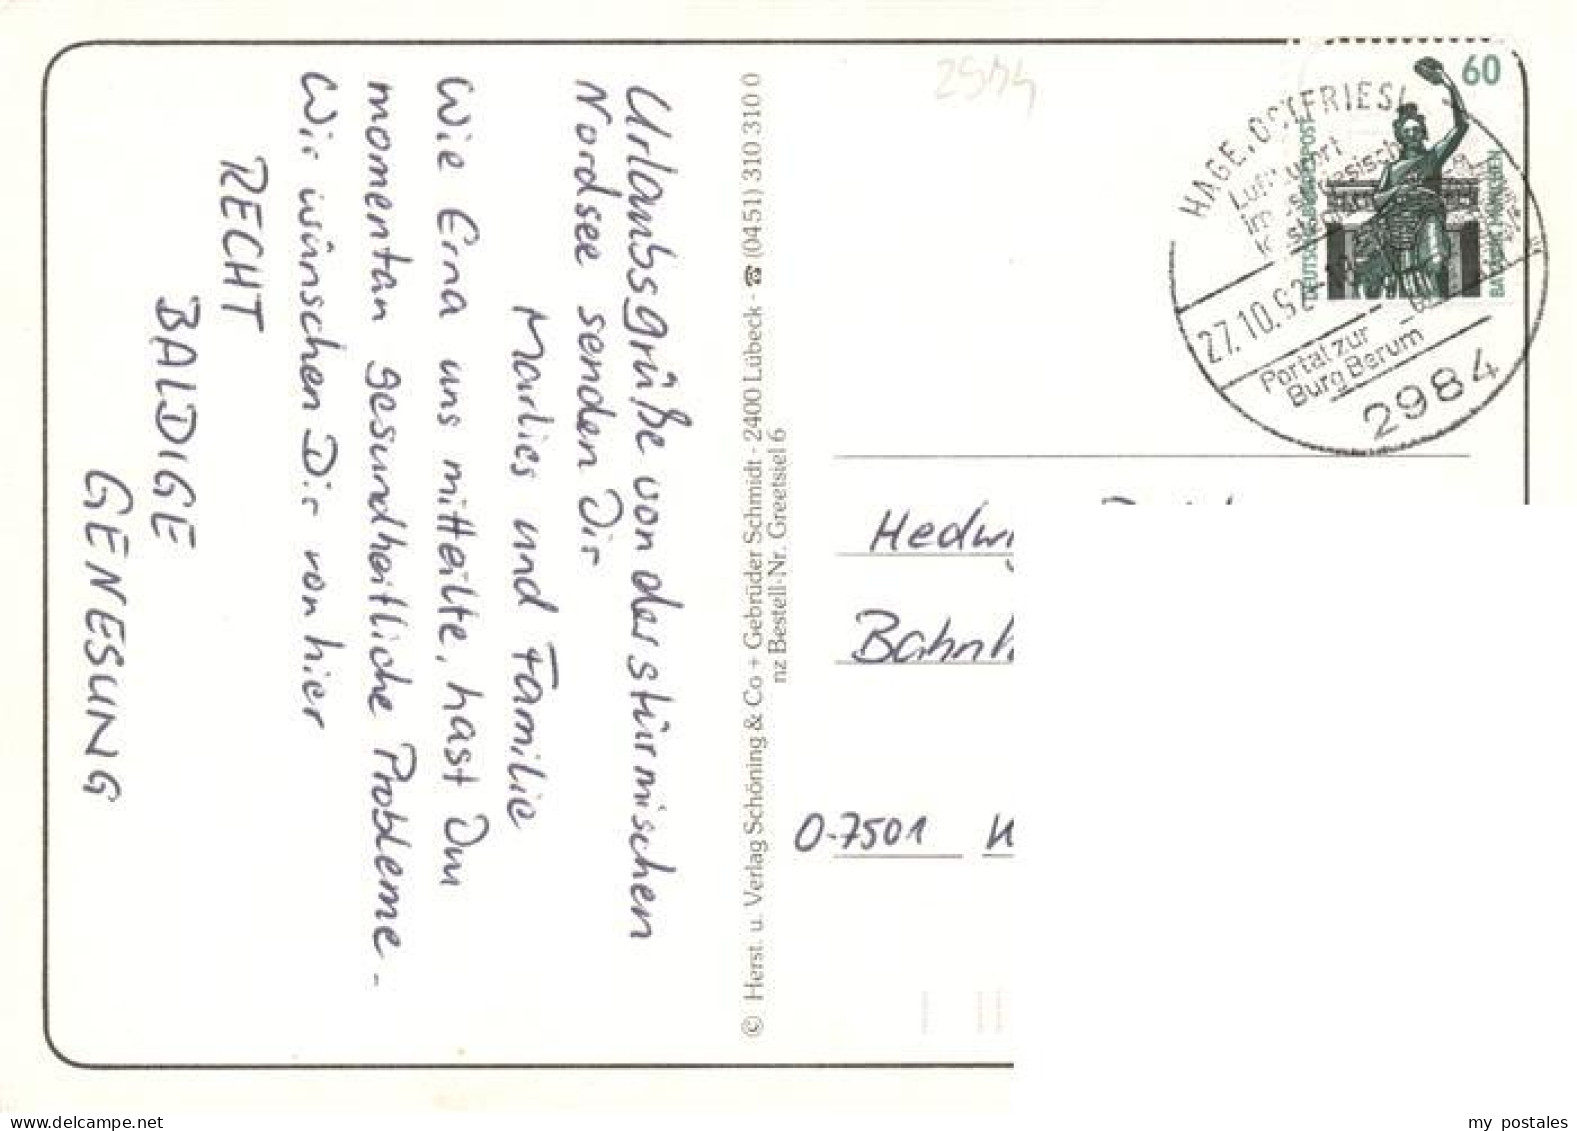 Urlaubsgrüße von der stürmischen
Nordsee senden Dir
Marlies und Familie
Wie Erna uns mitteilte, hast Du
momentan gesundheitliche Probleme -
Wir wünschen Dir von hier
RECHT
BALDIGE
GENESUNG
© Herst. u. Verlag Schöning & Co + Gebrüder Schmidt - 2400 Lübeck - ☎ (0451) 310 310 0
nz Bestell-Nr. Greetsiel 6
2984
60
DEUTSCHE BUNDESPOST
BAVARIA MÜNCHEN
HAGE, OSTFRIESL
Luftkurort
27.10.92
Portal zur
Burg Berum
2984
Hedwi
Bahnh
O-7501
www.delcampe.net
my postales